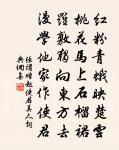 紅粉青娥映楚雲
桃花馬上石榴裙
羅敷獨向東方去
漫學他家作使君
張謂贈趙使君美人詞